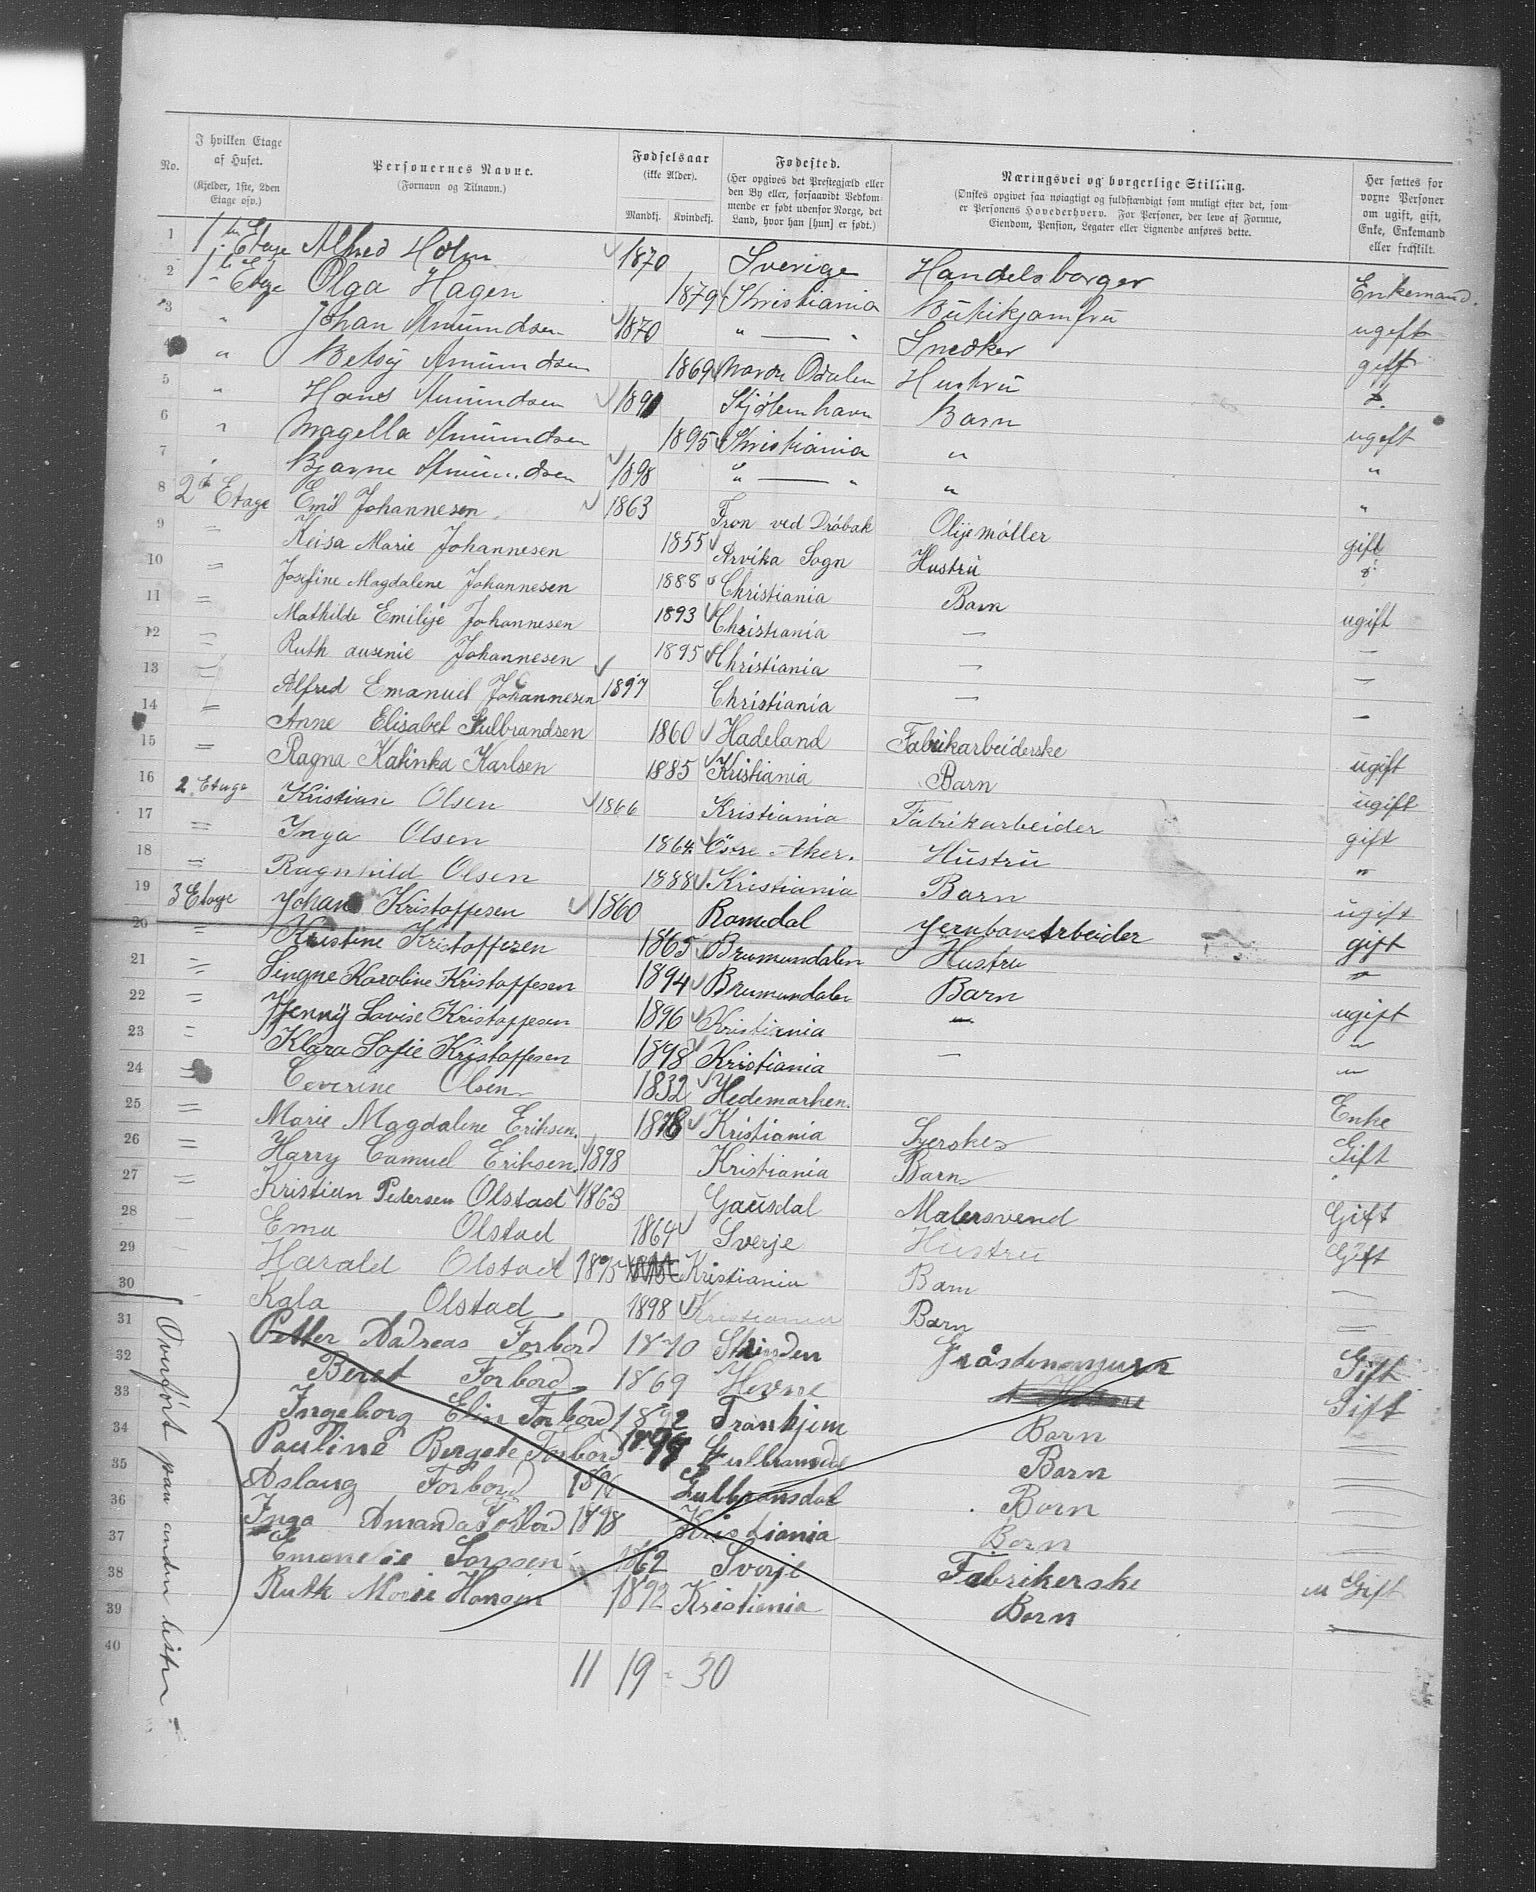 No. | I hvilken Etage af Huset. (Kjelder, 1ste, 2den Etage osv.) | Personernes Navne. (Fornavn og Tilnavn.) | Fødselsaar (ikke Alder). Mandkj. Kvindekj. | Fødested. (Her opgives det Prestegjæld eller den By eller, forsaavidt Vedkommende er født udenfor Norge, det Land, hvor han [hun] er født.) | Næringsvei og borgerlige Stilling. (Ønskes opgivet saa nøiagtigt og fuldstændigt som muligt efter det, som er Personens Hovederhverv. For Personer, der leve af Formue, Eiendom, Pension, Legater eller Lignende anføres dette. | Her sættes for voxne Personer om ugift, gift, Enke, Enkemand eller fraskilt.
1 1ste Etage Alfred Holm 1870 Sverige Handelsborger Enkemand.
2 1ste Etage Olga Hagen 1879 Kristiania Butikjomfru ugift
3 " Johan Amundsen 1870 " — " Snedker gift
4 " Betsy Amundsen 1869 Nordre Odalen Hustru d.
5 " Hans Amundsen 1891 Kjøbenhavn Barn ugift
6 " Magella Amundsen 1895 Kristiania " "
7 " Bjarne Amundsen 1898 " — " " "
8 2d Etage Emil Johannesen 1863 Fron ved Dröbak Olijemøller gift
9 " Keisa Marie Johannesen 1855 Arvika Sogn Hustru d:
10 = Josefine Magdalene Johannesen 1888 Christiania Barn ugift
11 = Mathilde Emilije Johannesen 1893 Christiania — —
12 = Ruth ausenie Johannesen 1895 Christiania — —
13 = Alfred Emanuel Johannesen 1897 Christiania — —
14 = Anne Elisabet Gulbrandsen 1860 Hadeland Fabrikarbeiderske ugift
15 = Ragna Katinka Karlsen 1885 Kristiania Barn ugift
16 2 Etage Kristian Olsen 1866 Kristiania Fabrikarbeider gift
17 = Inga Olsen 1864 Östre Aker. Hustru "
18 = Ragnhild Olsen 1888 Kristiania Barn ugift
19 3 Etage Johan Kristoffesen 1860 Romedal Jernbanearbeider gift
20 = Kristine Kristoffersen 1865 Brumundalen Hustru "
21 = Singne Karoline Kristoffesen 1894 Brumundalen Barn ugift
22 = Jenny Lovise Kristoffesen 1896 Kristiania — "
23 = Klara Sofie Kristoffesen 1898 Kristiania — "
24 = Ceverine Olsen 1832 Hedemarken. Enke
25 = Marie Magdalene Eriksen. 1878 Kristiania Syerske Gift
26 = Harry Camuel Eriksen. 1898 Kristiania Barn "
27 = Kristian Pedersen Olstad 1863 Gausdal Malersvend Gift
28 Ema Olstad 1864 Sverje Hustru Gift
29 Harald Olstad 1895 Kristiania Barn —
30 Kala Olstad 1898 Kristiania Barn =
31 Petter Andreas Forbord 1870 Strinden Gift
32 Beret Forbord 1869 Hevne Gift
33 Ingeborg Elin Forbord 1892 Tronhjem Barn
34 Pauline Bergete Forbord Gulbransdal Barn
35 Aslaug Forbord 1896 Gulbransdal Barn
36 Inga Amanda Forbord 1898 Kristiania Barn
37 Emanelie 1862 Sverje Fabrikerske u Gift
38 Ruth Marie Hansen 1892 Kristiania Barn
39
40
11 19 = 30
Overført paa anden liste.